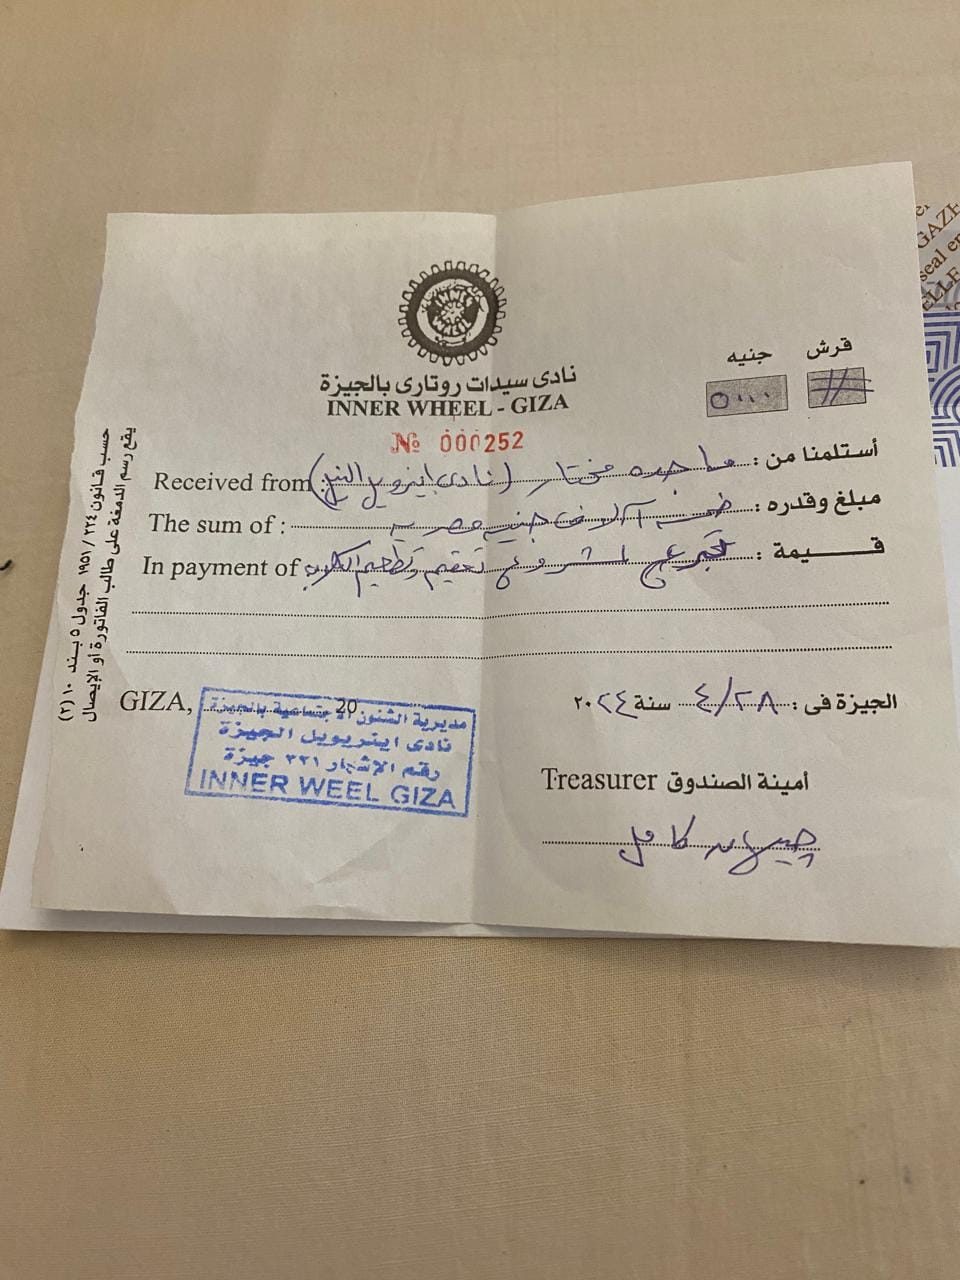 نادى سيدات روتارى بالجيزة
INNER WHEEL - GIZA
№ 000252
قرش جنيه
# ٥٠٠٠
أستلمنا من : ماجده مختار (نادى اينرويل النيل) Received from
مبلغ وقدره : خمسة آلاف جنيه مصريه The sum of :
قيمة : تبرع لمشروع تعقيم وتطعيم الكلاب In payment of
الجيزة فى : ٤/٢٨ سنة ٢٠٢٤
GIZA, 20
مديرية الشئون الاجتماعية بالجيزة
نادى اينرويل الجيزة
رقم الإشهار ٣٢١ جيزة
INNER WEEL GIZA
أمينة الصندوق Treasurer
جيهان كامل
يقع رسم الدمغة على طالب الفاتورة أو الإيصال
حسب قانون ٢٢٤ / ١٩٥١ جدول ٥ بند ١٠ (٢)
GAZE
seal en
ELLE